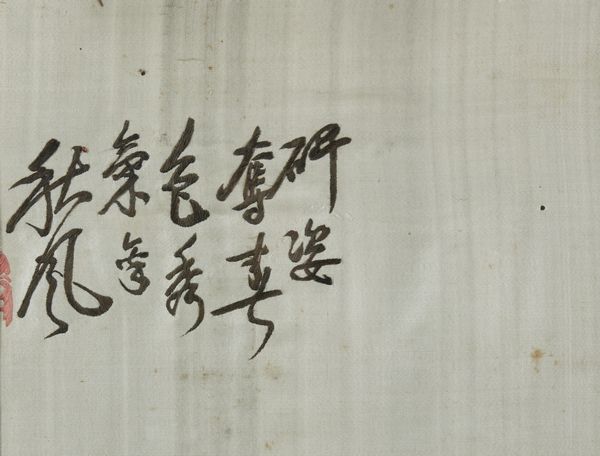 研姿
奪春
色秀
氣
秋風